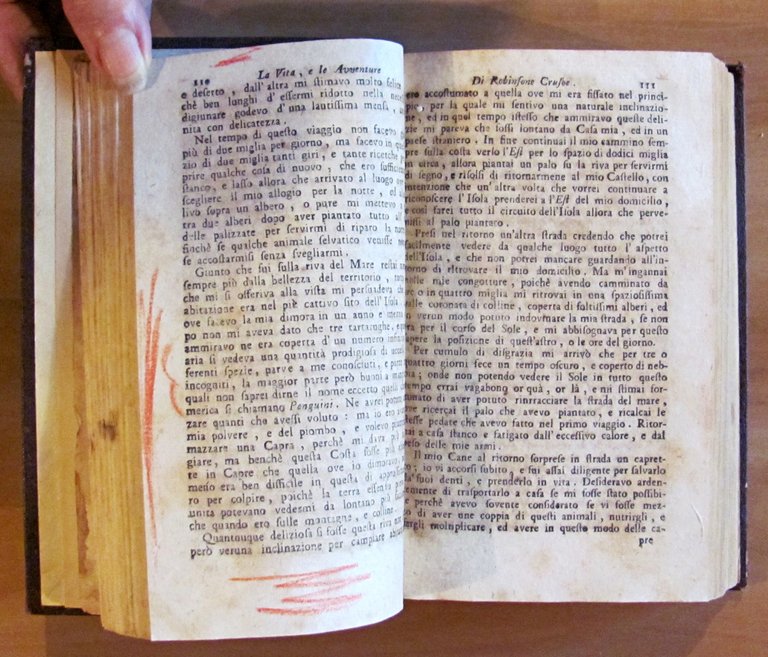 110 La Vita, e le Avventure
e deserto, dall'altra mi stimavo molto felice
chè ben lunghi d'essermi ridotto nella
digiunare godevo d'una lautissima mensa,
nita con delicatezza.
Nel tempo di questo viaggio non facevo
più di due miglia per giorno, ma facevo in
zio di due miglia tanti giri, e tante ricerche
prire qualche cosa di nuovo, che ero
stanco, e lasso allora che arrivato al luogo
scegliere il mio allogio per la notte, ed
livo sopra un albero, o pure mi mettevo
tra due alberi dopo aver piantato tutto
delle palizzate per servirmi di riparo la
finchè se qualche animale selvatico venisse
se accostarmisi senza svegliarmi.
Giunto che fui sulla riva del Mare restai
sempre più dalla bellezza del territorio,
che mi si offeriva alla vista mi persuadeva
abitazione era nel più cattivo sito dell'Isola
ove facevo la mia dimora in un anno e
po non mi aveva dato che tre tartarughe,
ammiravo ne era coperta d'un numero
aria si vedeva una quantità prodigiosa di
ferenti spezie, parte a me conosciuti, e
incogniti, la maggior parte però buoni a
quali non saprei dirne il nome eccetto quelli
merica si chiamano Penguini. Ne avrei
zare quanti che avessi voluto: ma io ero
mia polvere, e del piombo, e volevo
mazzare una Capra, perchè mi dava più
giare, ma benchè questa Costa fosse più
te in Capre che quella ove io dimoravo,
meno era ben difficile in questa di
ro per colpire, poichè la terra essendo
unita potevano vedesmi da lontano più
che quando ero sulle montagne, e colline.
Quantunque deliziosa si fosse questa riva non
però veruna inclinazione per cambiare
Di Robinsone Crusoe. 111
ero accostumato a quella ove mi era fissato nel princi-
pio, per la quale mi sentivo una naturale inclinazio-
ne, ed in quel tempo istesso che ammiravo queste deli-
zie mi pareva che fossi lontano da Casa mia, ed in un
paese straniero. In fine continuai il mio cammino sem-
pre sulla costa verso l'Est per lo spazio di dodici miglia
in circa, allora piantai un palo su la riva per servirmi
di segno, e risolsi di ritornarmene al mio Castello, con
intenzione che un'altra volta che vorrei continuare a
riconoscere l'Isola prenderei a l'Est del mio domicilio,
e così farei tutto il circuito dell'Isola allora che perve-
nissi al palo piantato.
Presi nel ritorno un'altra strada credendo che potrei
facilmente vedere da qualche luogo tutto l'aspetto
dell'Isola, e che non potrei mancare guardando all'in-
torno di ritrovare il mio domicilio. Ma m'ingannai
nelle mie congetture, poichè avendo camminato da
tre o in quattro miglia mi ritrovai in una spaziosissima
valle coronata di colline, coperta di foltissimi alberi, ed
in verun modo potuto indovinare la mia strada, se non
era per il corso del Sole, e mi abbisognava per questo
sapere la posizione di quest'astro, o le ore del giorno.
Per cumulo di disgrazia mi arrivò che per tre o
quattro giorni fece un tempo oscuro, e coperto di neb-
bia; onde non potendo vedere il Sole in tutto questo
tempo errai vagabong or quà, or là, e mi stimai for-
tunato di aver potuto rinrracciare la strada del mare,
ove ricercai il palo che avevo piantato, e ricalcai le
stesse pedate che avevo fatto nel primo viaggio. Ritor-
nai a casa stanco e fatigato dall'eccessivo calore, e dal
peso delle mie armi.
Il mio Cane al ritorno sorprese in strada un capret-
to; io vi accorsi subito, e fui assai diligente per salvarlo
da'suoi denti, e prenderlo in vita. Desideravo arden-
temente di trasportarlo a casa se mi fosse stato possibi-
le perchè avevo sovente considerato se vi fosse mez-
zo di aver una coppia di questi animali, nutrirgli, e
fargli moinplicare, ed avere in questo modo delle ca-
pre